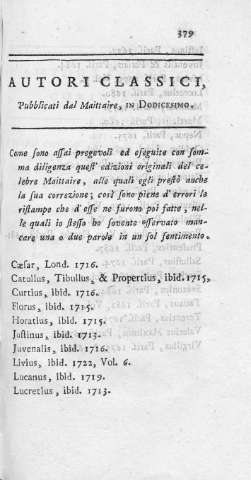 379
AUTORI CLASSICI,
Pubblicati dal Maittaire, IN DODICESIMO.
Come sono assai pregevoli ed eseguite con som-
ma diligenza quest' edizioni originali del ce-
lebre Maittaire, alle quali egli prestò anche
la sua correzione; così sono piene d'errori le
ristampe che d'esse ne furono poi fatte, nel-
le quali io stesso ho sovente osservato man-
care una o due parole in un sol sentimento.
Cæsar, Lond. 1716.
Catullus, Tibullus, & Propertius, ibid. 1715.
Curtius, ibid. 1716.
Florus, ibid. 1715.
Horatius, ibid. 1715.
Justinus, ibid. 1713.
Juvenalis, ibid. 1716.
Livius, ibid. 1722, Vol. 6.
Lucanus, ibid. 1719.
Lucretius, ibid. 1713.